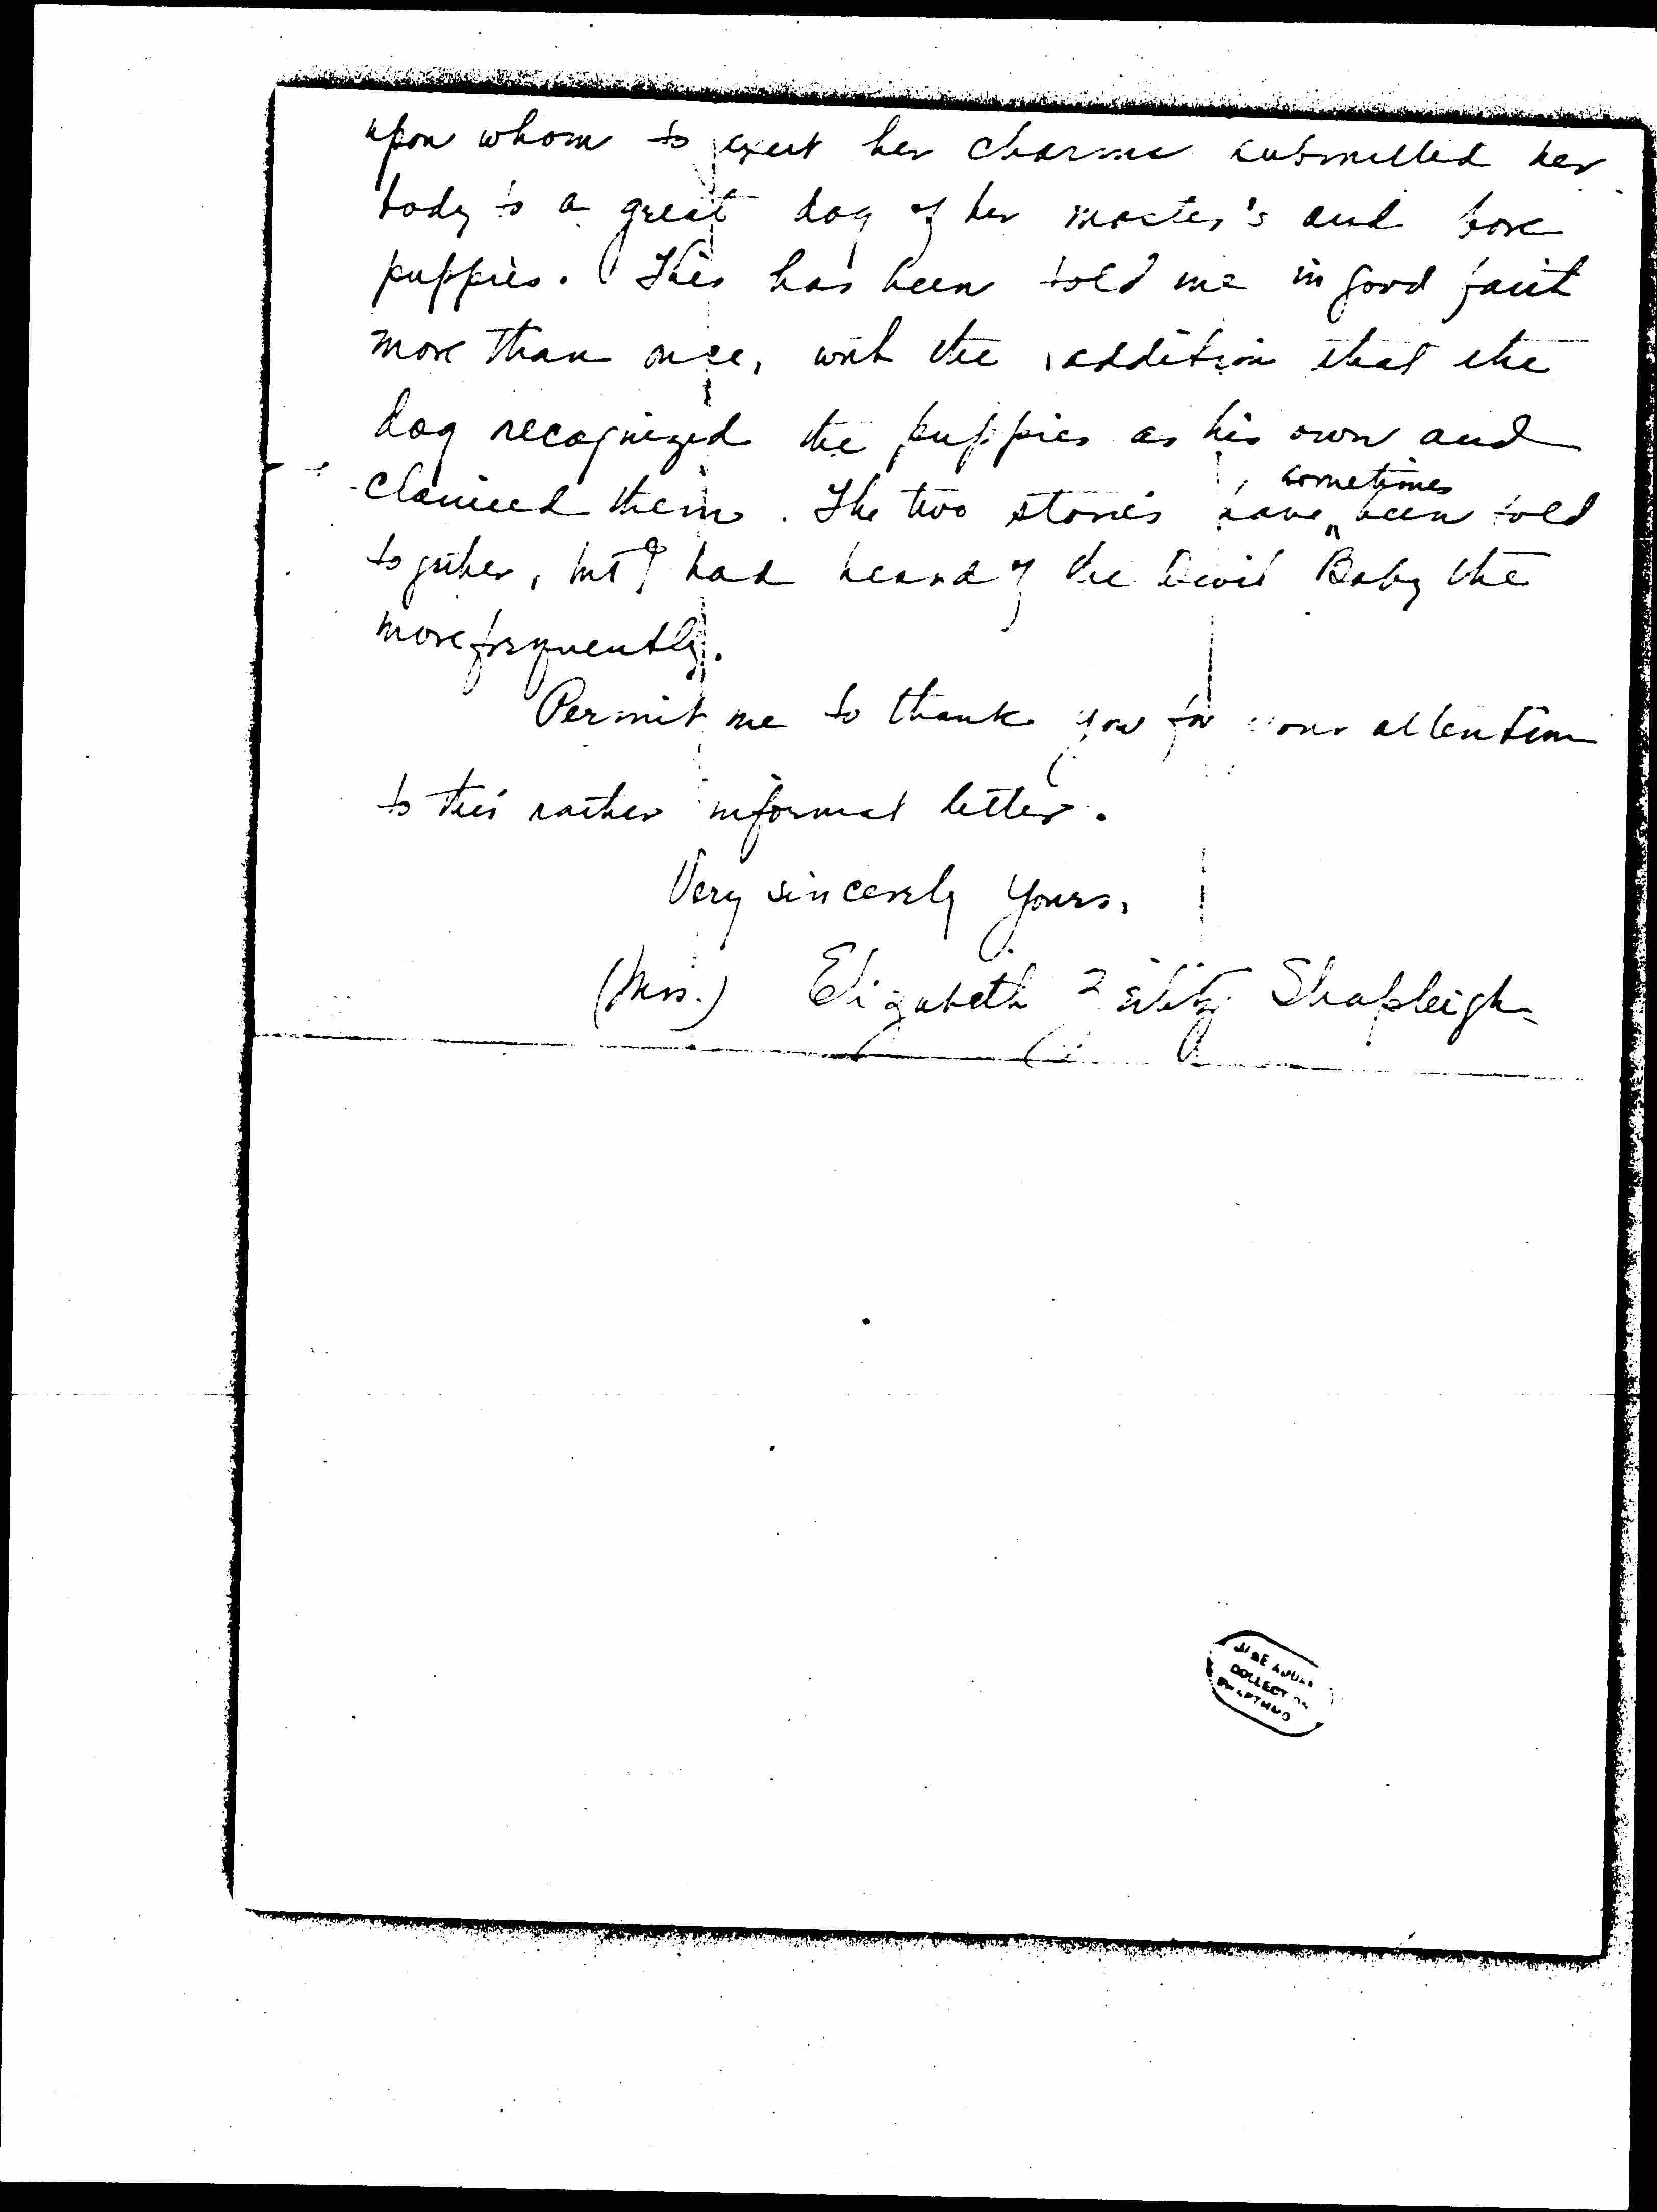 upon whom to exert her charms submitted her
body to a great dog of her master's and bore
puppies. This has been told me in good fait
more than once, with the addition that the
dog recognized the puppies as his own and
claimed them. The two stories have sometimes been told
together, but I had heard of the Devil Baby the
more frequently.
Permit me to thank you for your attention
to this rather informal letter.
Very sincerely yours,
(Mrs.) Elizabeth Shapleigh
COLLECT